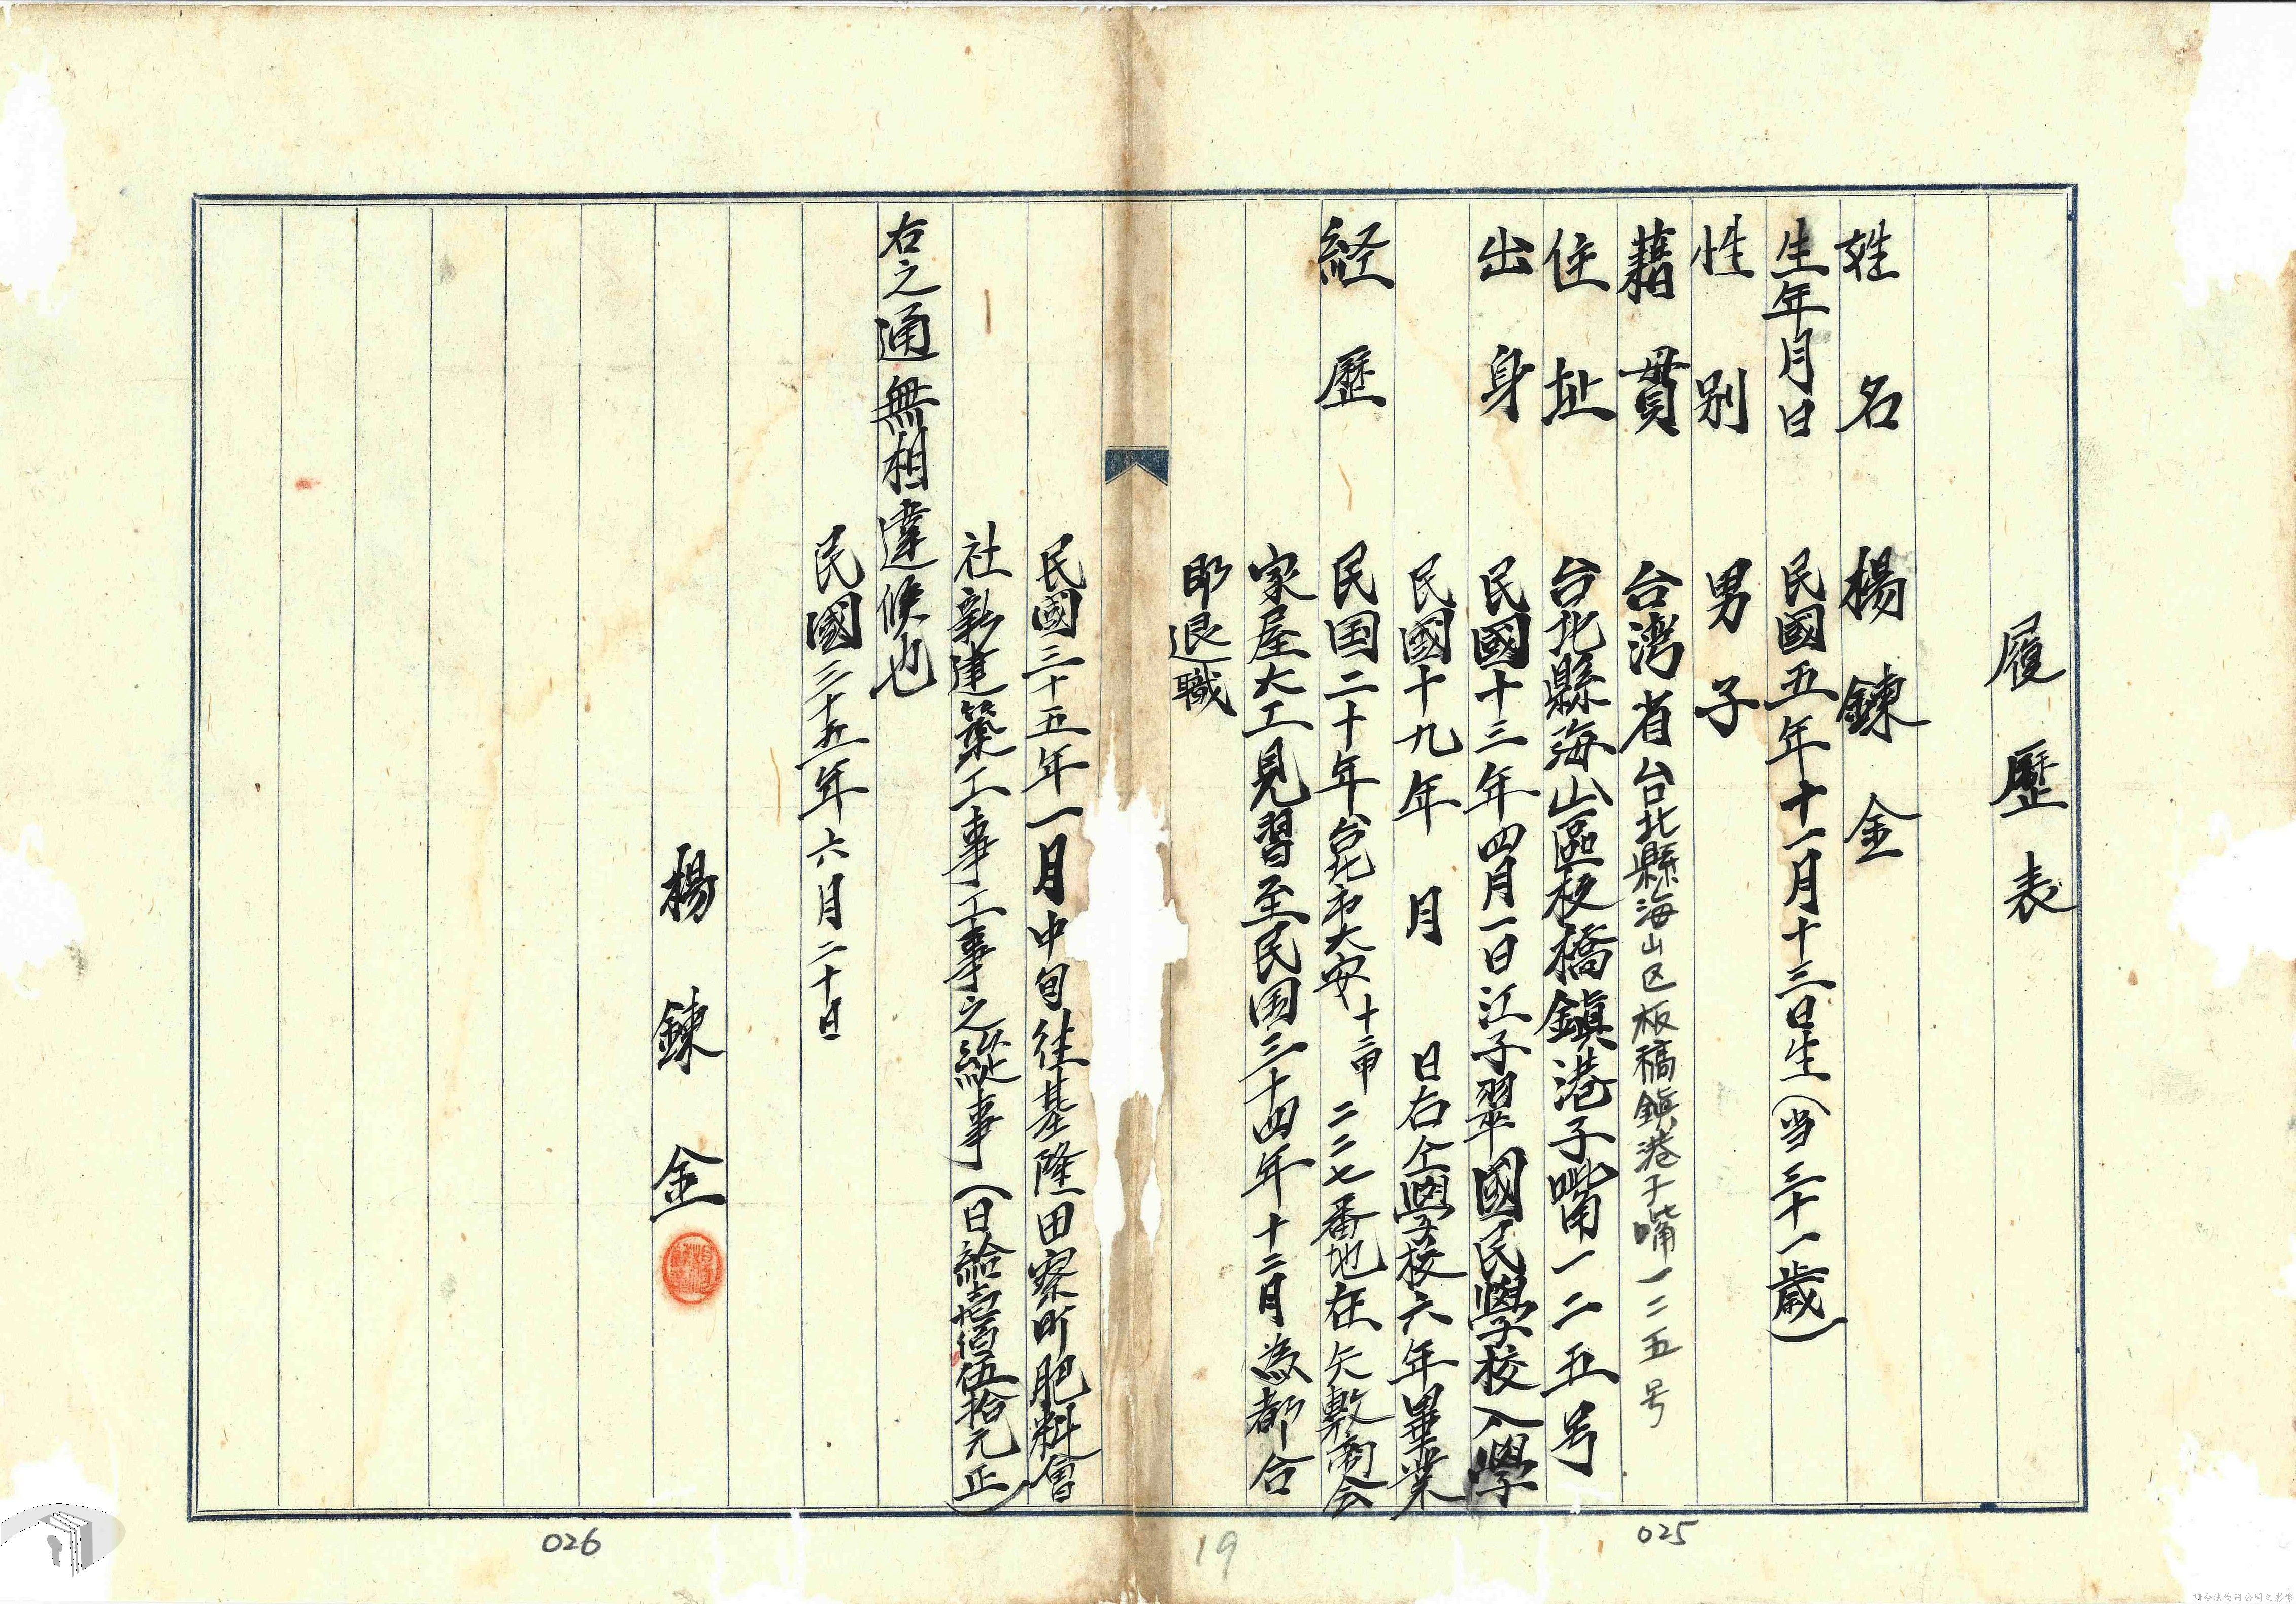 履歷表
姓名 楊鍊金
生年月日 民國五年十一月十三日生(当三十一歲)
性別 男子
藉貫 台湾省台北縣海山区板稿鎮港子嘴一二五号
住址 台北縣海山區板橋鎮港子嘴一二五号
出身 民國十三年四月一日江子翠國民學校入學
民國十九年 月 日右仝學校六年畢業
経歷 民国二十年台北市大安十二甲二二七番地在矢敷商会
家屋大工見習至民国三十四年十二月為都合
即退職
民國三十五年一月中旬往基隆田寮町肥料會
社新建築工事工事之縦事(日給壹佰伍拾元正)
右之通無相違候也
民國三十五年六月二十日
楊鍊金
026
19
025
請合法使用公開之影像